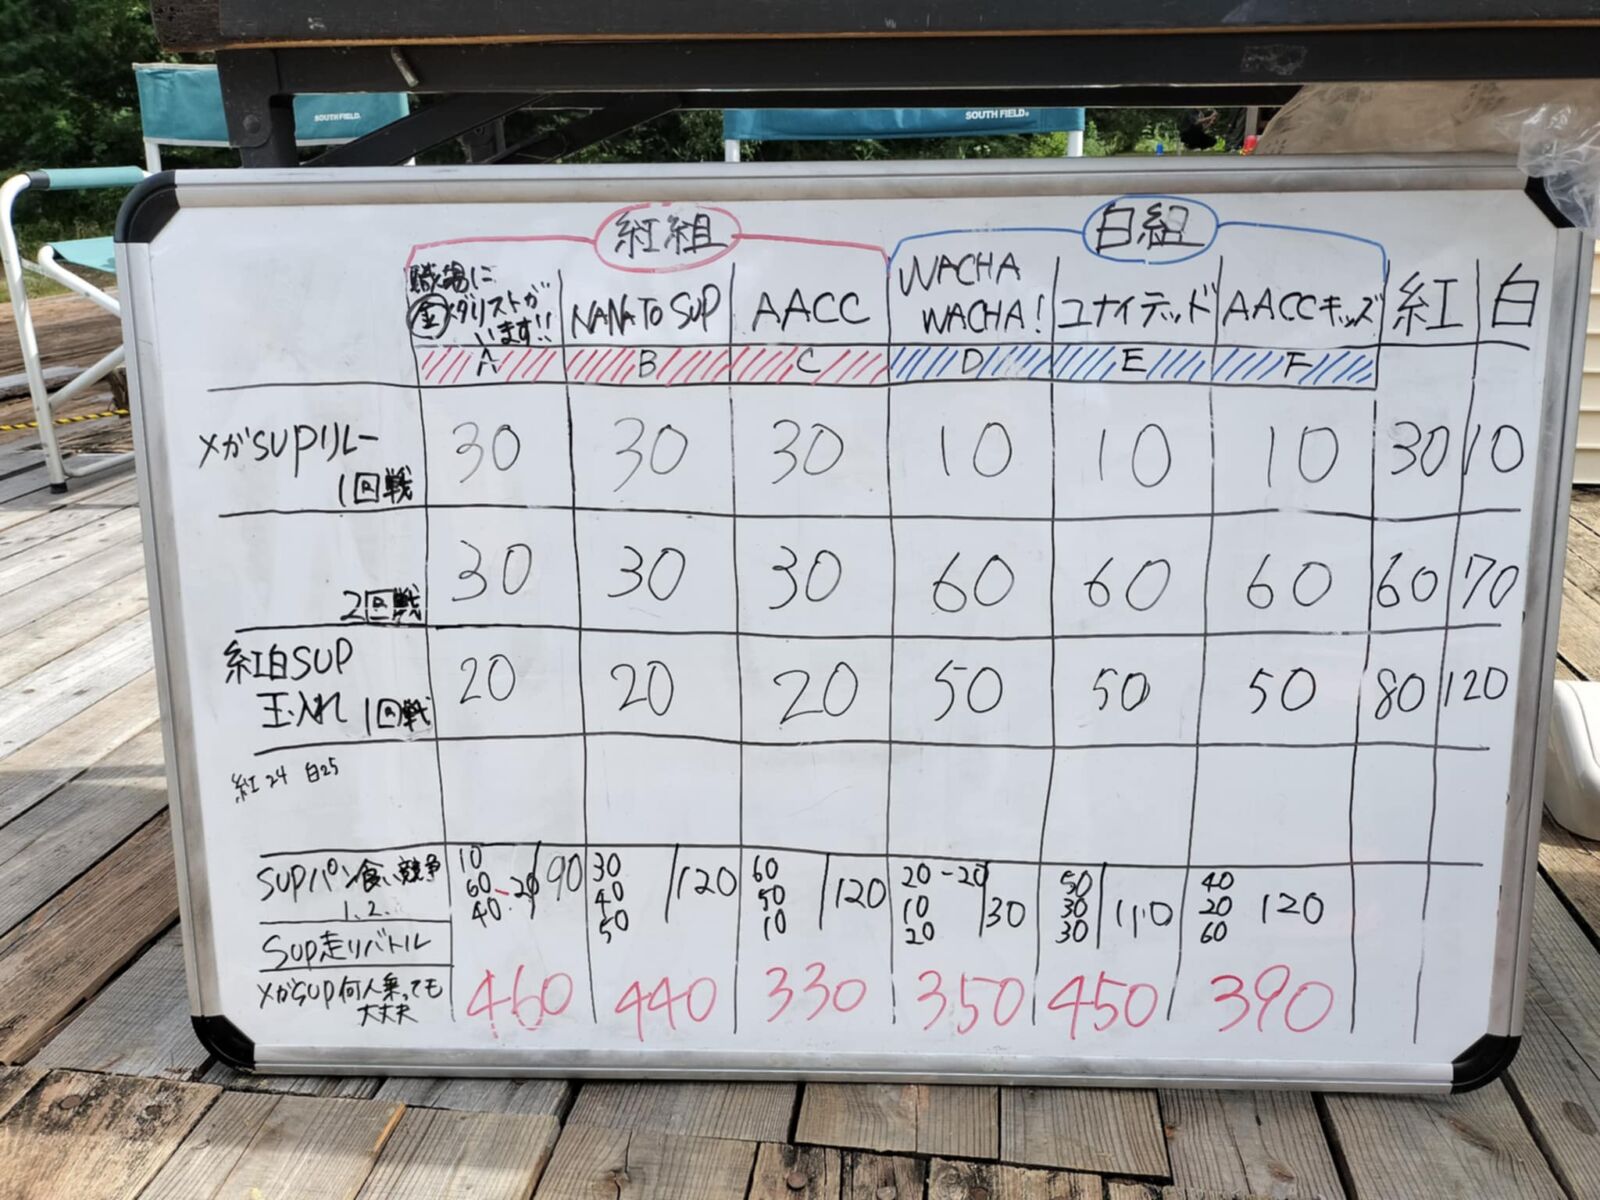 SOUTH FIELD.
SOUTH FIELD.
紅組 白組
職場に
金メダリストが
います!!
NANA TO SUP
AACC
WACHA
WACHA!
ユナイテッド
AACCキッズ
紅 白
A B C D E F
メガSUPリレー
1回戦
30 30 30 10 10 10 30 10
2回戦
30 30 30 60 60 60 60 70
紅白SUP
玉入れ 1回戦
20 20 20 50 50 50 80 120
紅24 白25
SUPパン食い競争
1. 2.
10
60 -20
40
90
30
40
50
120
60
50
10
120
20 -20
10
20
30
50
30
30
110
40
20
60
120
SUP走りバトル
メガSUP何人乗っても
大丈夫
460 440 330 350 450 390